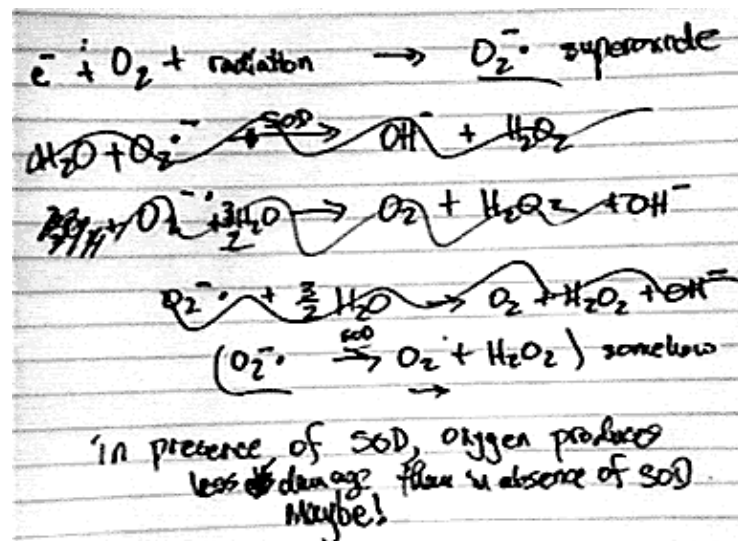 e⁻ + O₂ + radiation → O₂⁻· superoxide
H₂O + O₂·⁻ SOD → OH⁻ + H₂O₂
+ O₂⁻· + 3/2 H₂O → O₂ + H₂O₂ + OH⁻
O₂⁻· + 3/2 H₂O → O₂ + H₂O₂ + OH⁻
(O₂⁻· SOD → O₂ + H₂O₂) somehow
in presence of SOD, oxygen produces
less damage than in absence of SOD.
Maybe!